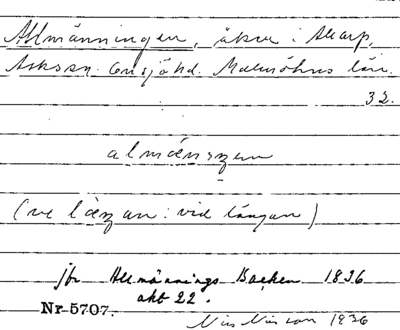 Allmänningen, åker i Allarp,
Asks sn. Onsjö hd. Malmöhus län.
32.
almäniŋen
(ve läŋan: vid längan)
jfr Allmännings Backen 1826
akt 22.
Nr 5707. Nils Nilsson 1936